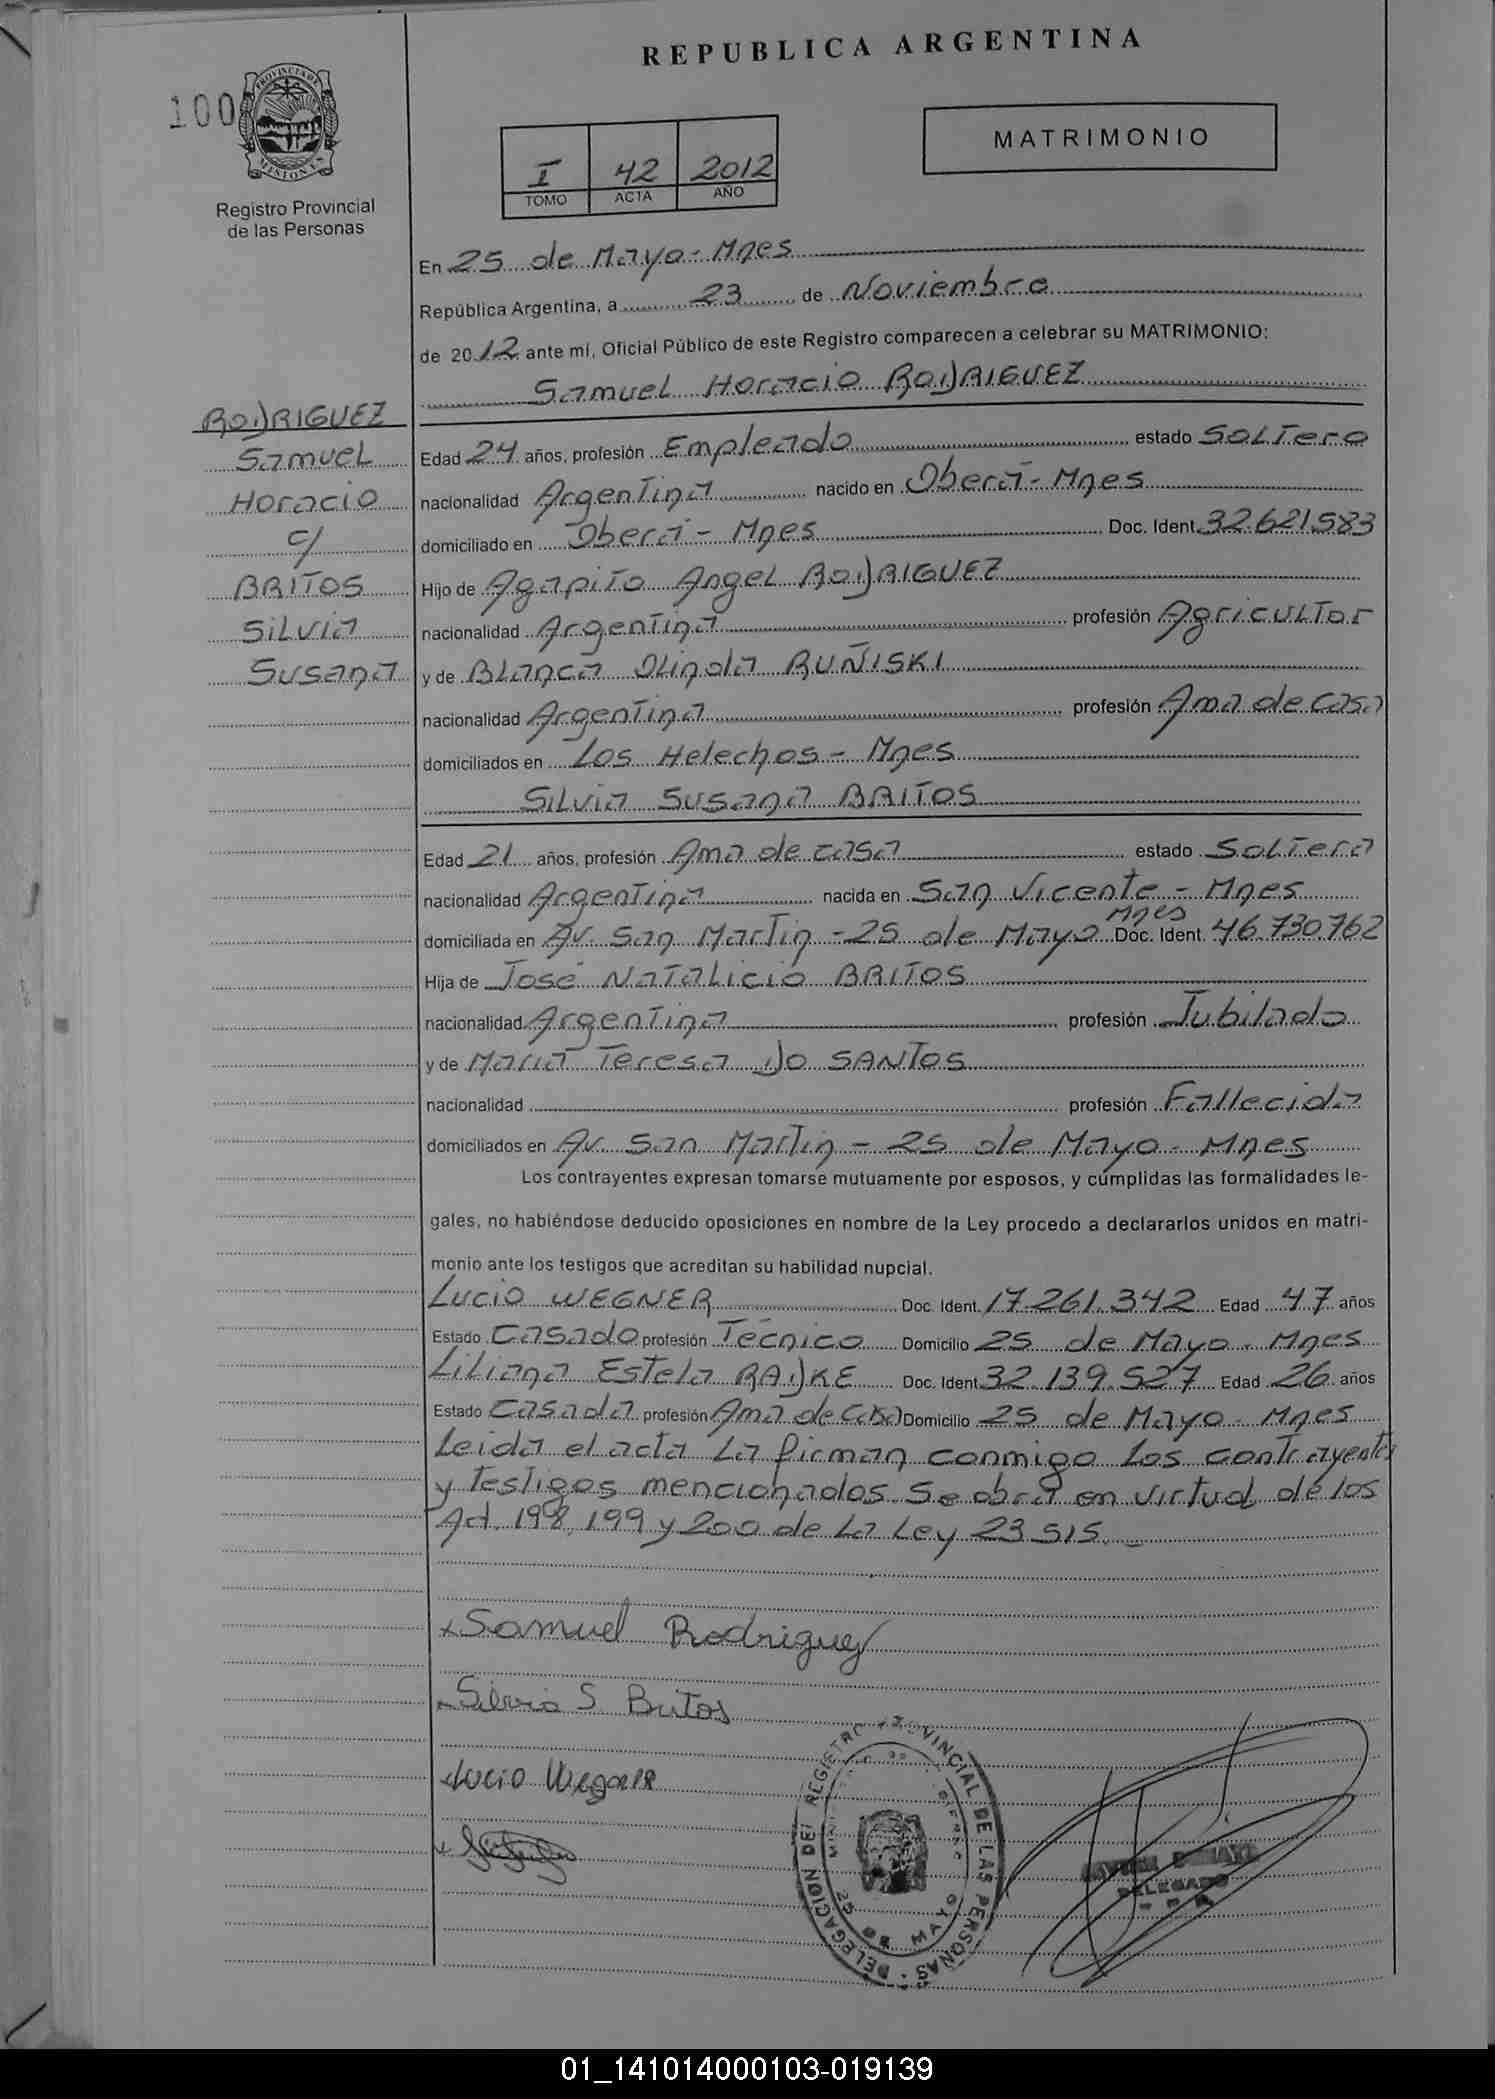 REPUBLICA ARGENTINA
100
PROVINCIA DE
MISIONES
Registro Provincial
de las Personas
MATRIMONIO
I 42 2012
TOMO ACTA AÑO
En 25 de Mayo - Mnes
República Argentina, a 23 de Noviembre
de 2012 ante mí, Oficial Público de este Registro comparecen a celebrar su MATRIMONIO:
Samuel Horacio RODRIGUEZ
RODRIGUEZ
Samuel
Horacio
c/
BRITOS
Silvia
Susana
Edad 24 años, profesión Empleado estado Soltero
nacionalidad Argentina nacido en Oberá - Mnes
domiciliado en Oberá - Mnes Doc. Ident. 32.621.583
Hijo de Agapito Angel RODRIGUEZ
nacionalidad Argentina profesión Agricultor
y de Blanca Olinda RUÑISKI
nacionalidad Argentina profesión Ama de Casa
domiciliados en Los Helechos - Mnes
Silvia Susana BRITOS
Edad 21 años, profesión Ama de casa estado Soltera
nacionalidad Argentina nacida en San Vicente - Mnes
domiciliada en Av. San Martin - 25 de Mayo Mnes Doc. Ident. 46.730.762
Hija de José Natalicio BRITOS
nacionalidad Argentina profesión Jubilado
y de María Teresa DO SANTOS
nacionalidad profesión Fallecida
domiciliados en Av. San Martin - 25 de Mayo - Mnes
Los contrayentes expresan tomarse mutuamente por esposos, y cumplidas las formalidades le-
gales, no habiéndose deducido oposiciones en nombre de la Ley procedo a declararlos unidos en matri-
monio ante los testigos que acreditan su habilidad nupcial.
Lucio WEGNER Doc. Ident. 17.261.342 Edad 47 años
Estado Casado profesión Técnico Domicilio 25 de Mayo - Mnes
Liliana Estela RADKE Doc. Ident. 32.139.527 Edad 26 años
Estado Casada profesión Ama de Casa Domicilio 25 de Mayo - Mnes
Leida el acta La firman conmigo Los contrayentes
y Testigos mencionados. Se obra en virtud de los
Art. 198, 199 y 200 de La Ley 23.515.-
x Samuel Rodriguez
x Silvia S Britos
x Lucio Wegner
DELEGACION DEL REGISTRO PROVINCIAL DE LAS PERSONAS
25 DE MAYO
DELEGADO
01_141014000103-019139